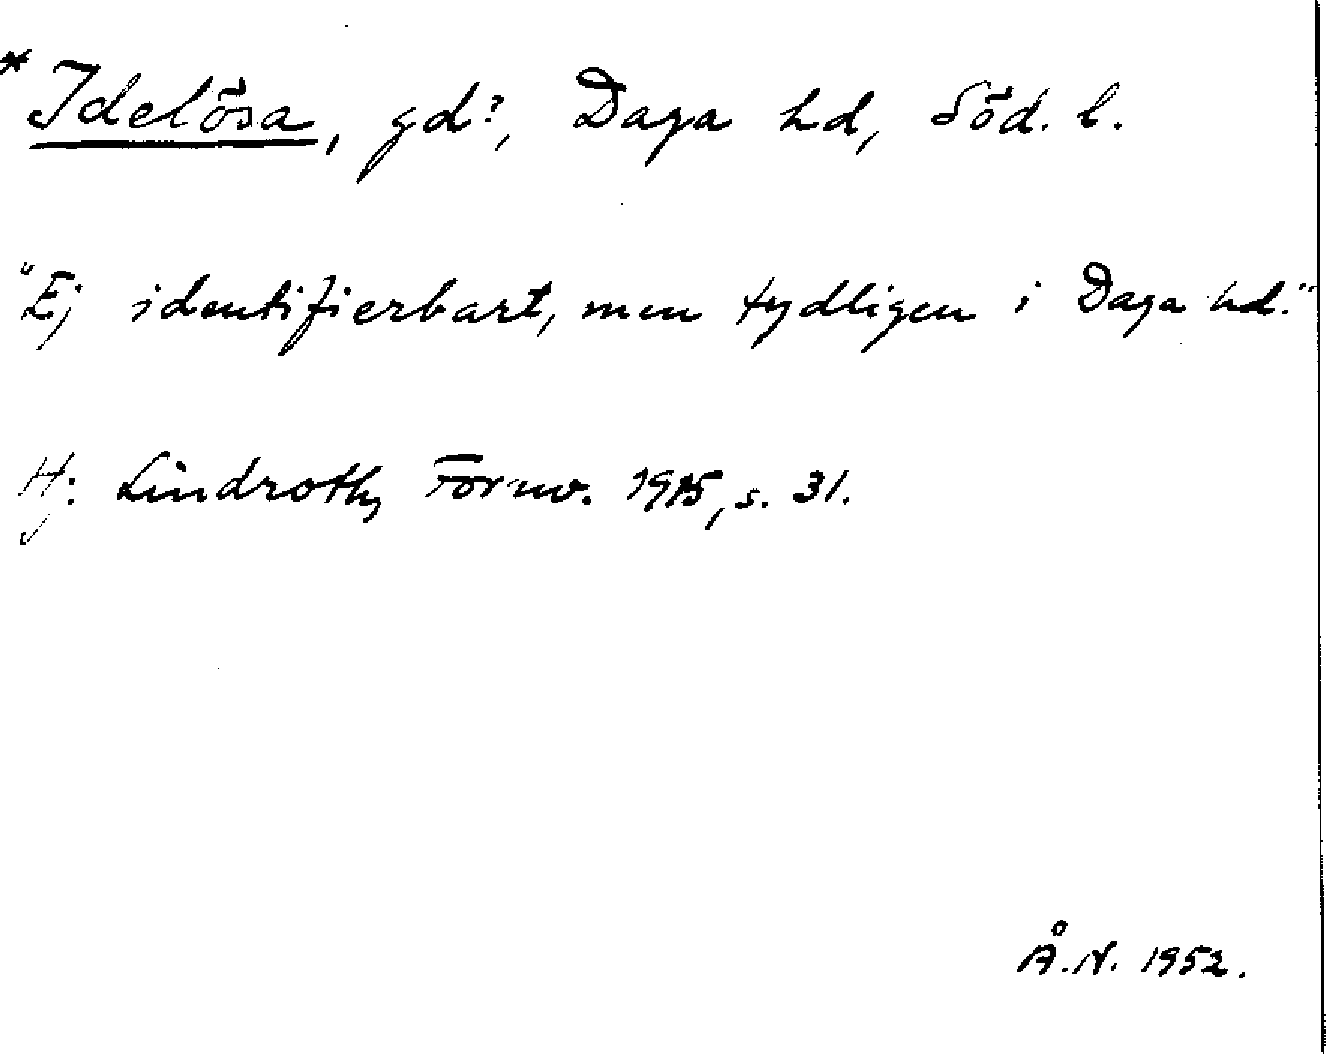 * Idelösa, gd?, Daga hd, Söd. l.
"Ej identifierbart, men tydligen i Daga hd."
Hj. Lindroth, Fornv. 1915, s. 31.
Å.N. 1952.